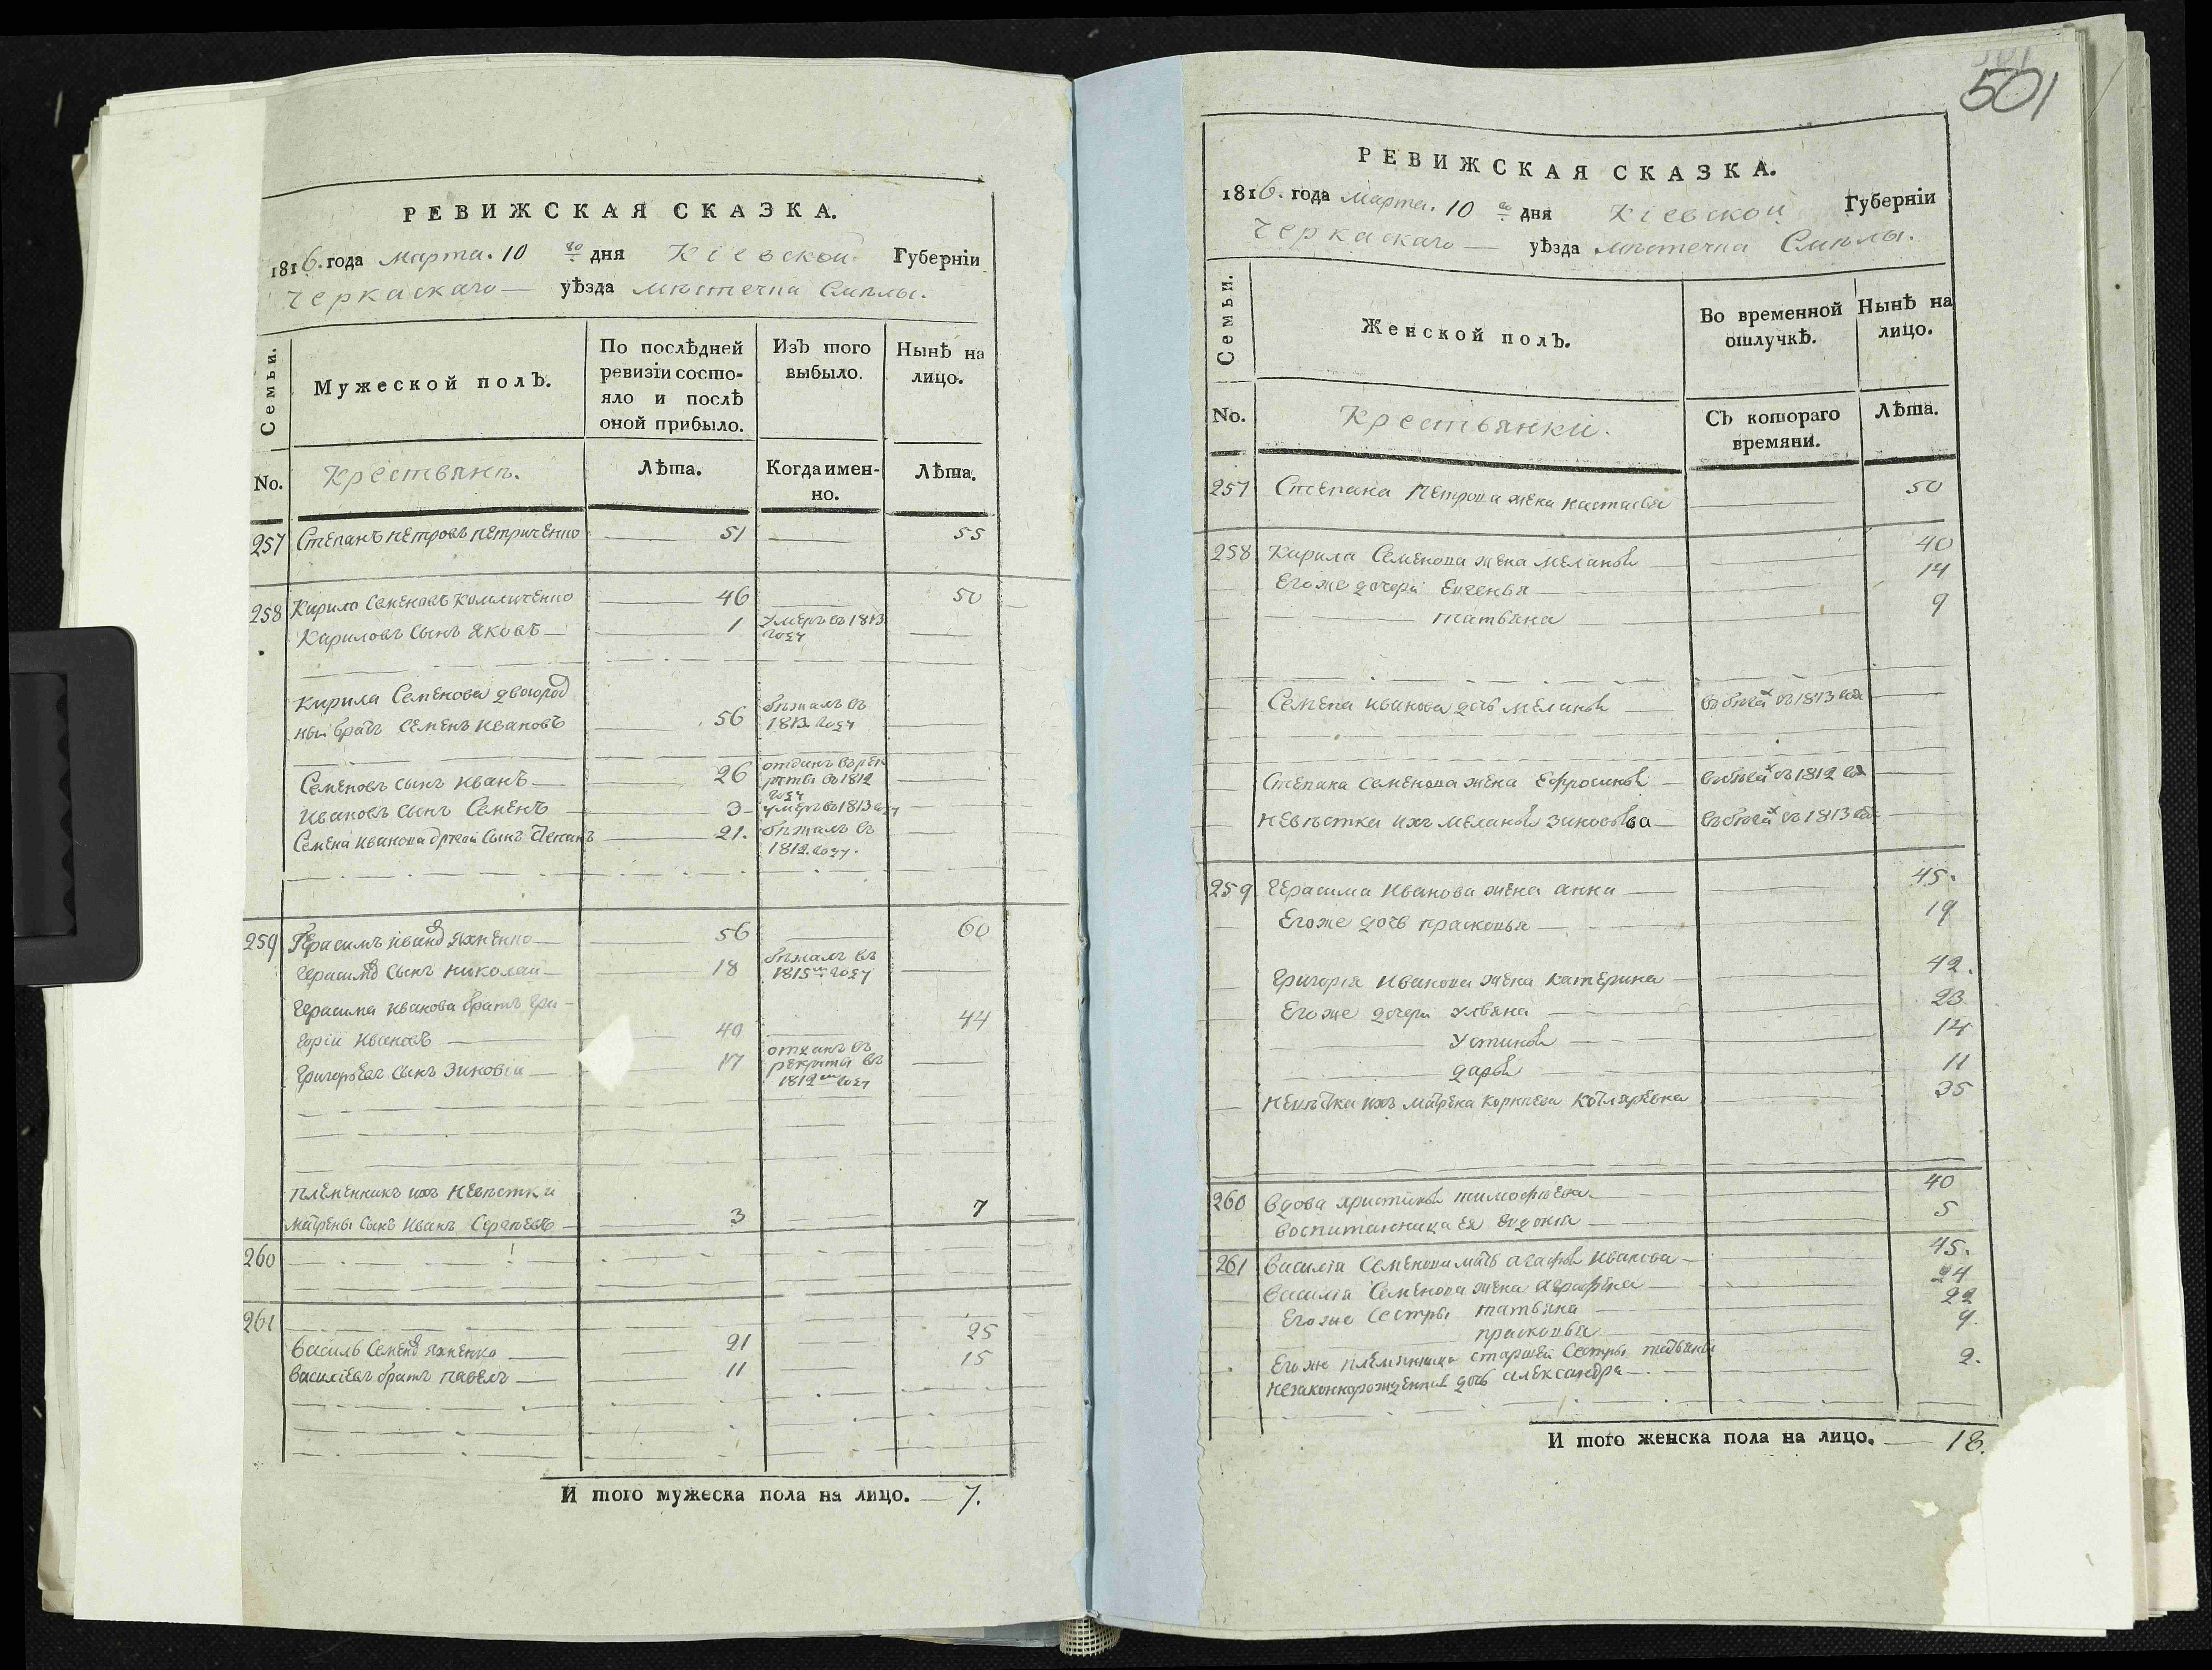 РЕВИЖСКАЯ СКАЗКА.
1816. года марта. 10 го дня Кіевской Губерніи
Черкаскаго — уѣзда мѣстечка Смѣлы.
Семьи.
Мужеской полъ.
По послѣдней ревизіи состо-
яло и послѣ
оной прибыло.
Изъ того
выбыло.
Нынѣ на
лицо.
No.
Крестьянъ.
Лѣта.
Когда имен-
но.
Лѣта.
257 Степанъ Петровъ Петриченко — 51 — 55
258 Кирило Семеновъ — 46 — 50
Кириловъ сынъ Яковъ — 1 умеръ въ 1813 году —
Кирила Семенова двоюрод
ный братъ Семенъ Ивановъ — 56 бѣжалъ въ 1813 году —
Семеновъ сынъ Иванъ — 26 отданъ въ рек
руты въ 1812 году —
Ивановъ сынъ Семенъ — 3 умеръ въ 1813 году —
Семена Иванова другой сынъ Степанъ 21. бѣжалъ въ
1812. году. —
259 Герасимъ Иванов Яхненко — 56 — 60
Герасимов сынъ Николай — 18 бѣжалъ въ
1815 м году —
Герасима Иванова братъ Гри-
горій Ивановъ — 40 — 44
Григорьевъ сынъ Зиновій — 17 отданъ въ
рекруты въ
1812 м году —
Племенникъ ихъ невѣстки
Матрены сынъ Иванъ Сергѣевъ — 3 — 7
260
261
Василь Семенов Яхненко — 21 — 25
Василіевъ братъ Павелъ — 11 — 15
И того мужеска пола на лицо. — 7.
501
РЕВИЖСКАЯ СКАЗКА.
1816. года марта. 10 го дня Кіевской Губерніи
Черкаскаго — уѣзда мѣстечка Смѣлы.
Семьи.
Женской полъ.
Во временной
отлучкѣ.
Нынѣ на
лицо.
No.
Крестьянки.
Съ котораго
времяни.
Лѣта.
257 Степана Петрова жена Настасья — 50
258 Кирила Семенова жена Меланья — 40
Егоже дочери Евгенья — 14
— Татьяна — 9
Семена Иванова дочь Меланья — въ бѣгах съ 1813 года —
Степана Семенова жена Ефросинья — въ бѣгах съ 1812 года —
Невѣстка ихъ Меланья Зиновьева — въ бѣгах съ 1813 года —
259 Герасима Иванова жена Анна — 45.
Егоже дочь Прасковья — 19
Григорія Иванова жена Катерина — 42.
Егоже дочери Ульяна — 23
— Устинья — 14
— Дарья — 11
Невѣстка ихъ Матрена Корнѣева Котляревна 35
260 Вдова Христинья Тимофѣева — 40
Воспитанница ея Евдокія — 5
261 Василія Семенова мать Агафья Иванова — 45.
Василія Семенова жена Аграфена — 24
Егоже сестры Татьяна — 22
— Прасковья — 9.
Егоже племянница старшей сестры Татьяны
незаконнорожденная дочь Александра — 2.
И того женска пола на лицо. — 18.